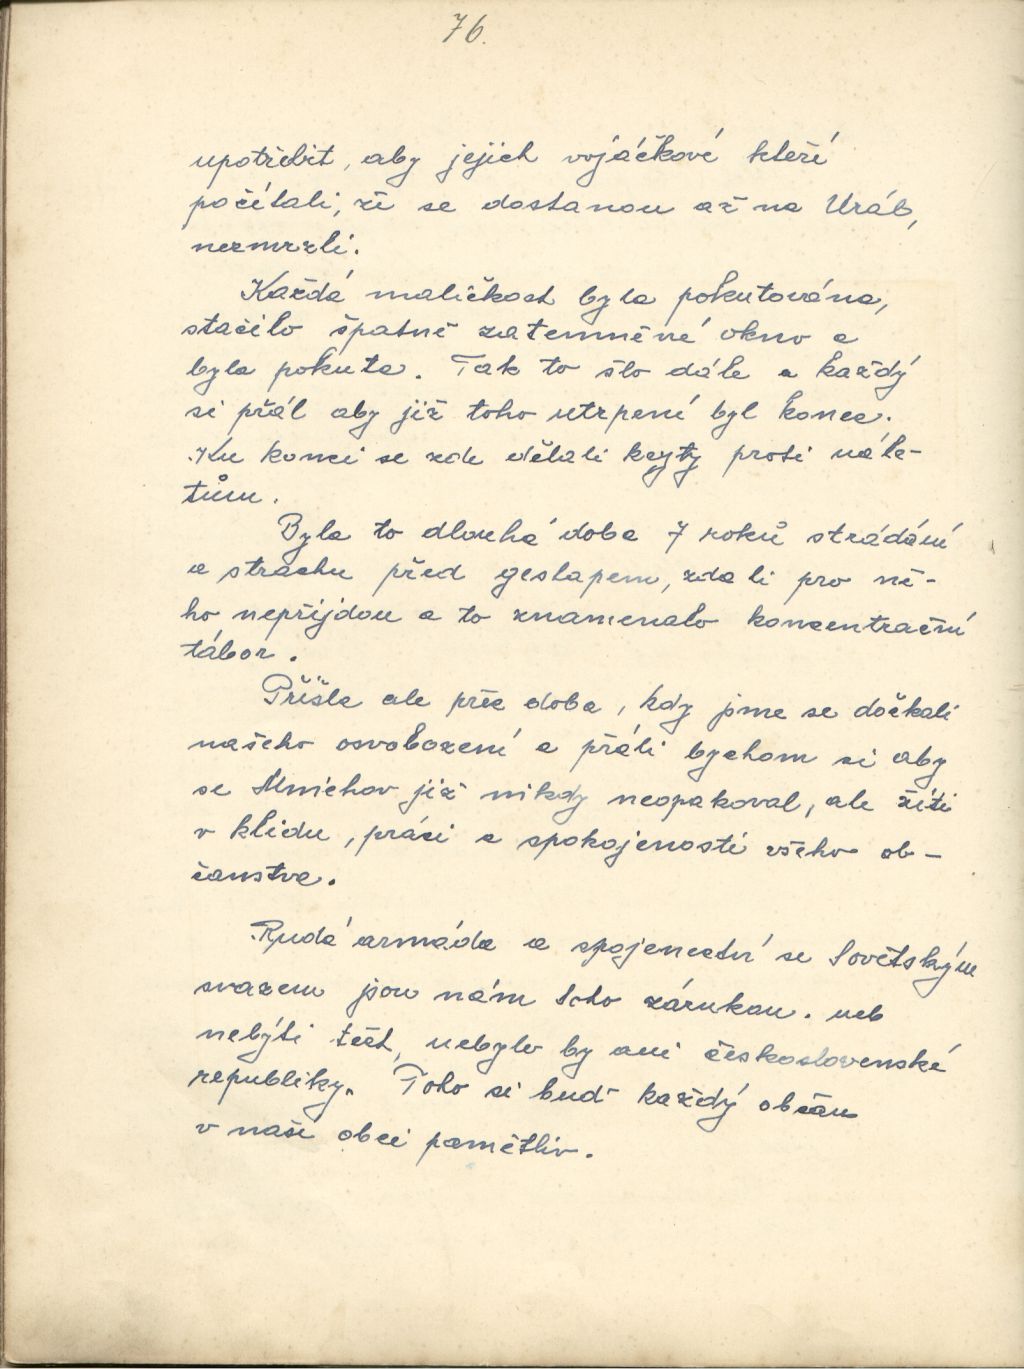 76.
upotřebit, aby jejich vojáčkové kteří
počítali, že se dostanou až na Urál,
nezmrzli.
Každá maličkost byla pokutována,
stačilo špatně zatemněné okno a
byla pokuta. Tak to šlo dále a každý
si přál aby již toho utrpení byl konec.
Ku konci se zde dělali kryty proti nále-
tům.
Byla to dlouhá doba 7 roků strádání
a strachu před gestapem, zda li pro ně-
ho nepřijdou a to znamenalo koncentrační
tábor.
Přišla ale přec doba, kdy jsme se dočkali
našeho osvobození a přáli bychom si aby
se Mnichov již nikdy neopakoval, ale žíti
v klidu, práci a spokojenosti všeho ob-
čanstva.
Rudá armáda a spojenectví se Sovětským
svazem jsou nám toho zárukou. neb
nebýti těch, nebylo by ani československé
republiky. Toho si buď každý občan
v naší obci pamětliv.